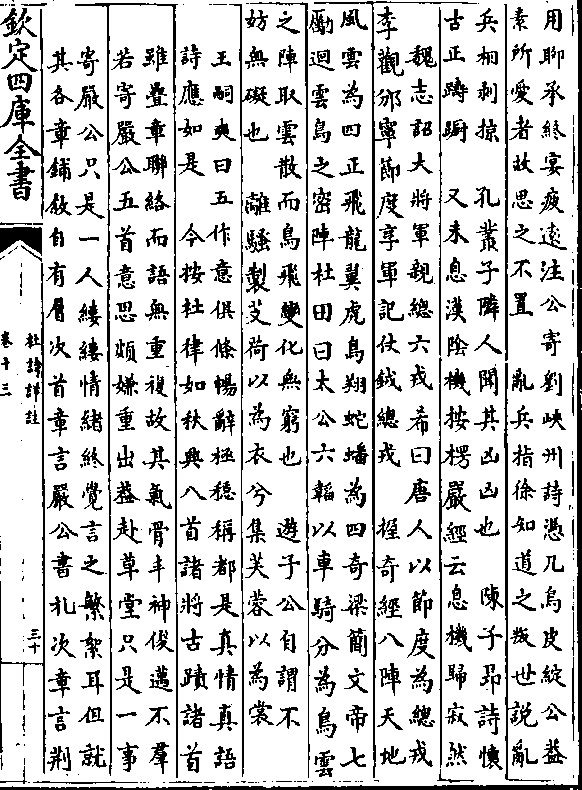 用聊承終宴疲遠注公寄劉峽州詩憑几烏皮綻公葢
素所愛者故思之不置　亂兵指徐如道之叛世說亂
兵相剥掠　孔叢子隣人聞其凶凶也　陳子昻詩懐
古正躊躇　又未息漢陰機按楞嚴經云息機歸寂然
魏志詔大將軍親總六戎希曰唐人以節度為總戎
李觀邠寧節度享軍記仗鉞總戎　握奇經八陣天地
風雲為四正飛龍翼虎鳥翔蛇蟠為四奇梁簡文帝七
勵迴雲鳥之密陣杜田曰太公六韜以車騎分為鳥雲
之陣取雲散而鳥飛變化無窮也　遊子公自謂不
妨無礙也　離騷製芰荷以為衣兮集芙蓉以為裳
王嗣奭曰五作意俱條暢辭極穏稱都是真情真語
詩應如是　今按杜律如秋興八首諸將古蹟諸首
雖疊章聯絡而語無重複故其氣骨丰神俊邁不羣
若寄嚴公五首意思頗嫌重出葢赴草堂只是一事
寄嚴公只是一人縷縷情緒終覺言之繁絮耳但就
其各章鋪敘自有層次首章言嚴公書札次章言荆
欽定四庫全書
杜詩詳註
卷十三
三十